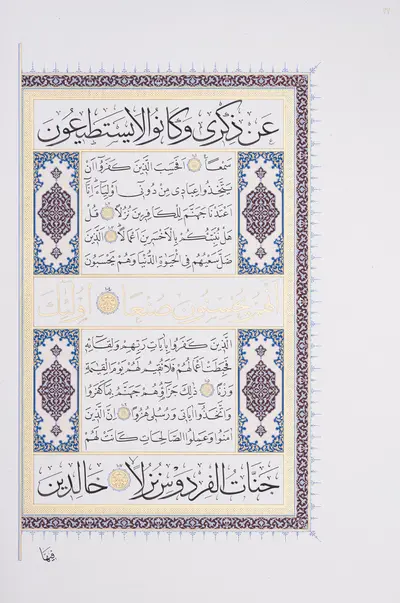 عن ذكرى وكانوا لا يستطيعون
سمعاً ۝ افحسب الذين كفروا ان
يتخذوا عبادى من دونى اولياء انا
اعتدنا جهنم للكافرين نزلاً ۝ قل
هل ننبئكم بالاخسرين اعمالاً ۝ الذين
ضل سعيهم فى الحيوة الدنيا وهم يحسبون
انهم يحسنون صنعاً ۝ اولئك
الذين كفروا بايات ربهم ولقائه
فحبطت اعمالهم فلا نقيم لهم يوم القيمة
وزناً ۝ ذلك جزاؤهم جهنم بما كفروا
واتخذوا اياتى ورسلى هزواً ۝ ان الذين
امنوا وعملوا الصالحات كانت لهم
جنات الفردوس نزلاً ۝ خالدين
فيها